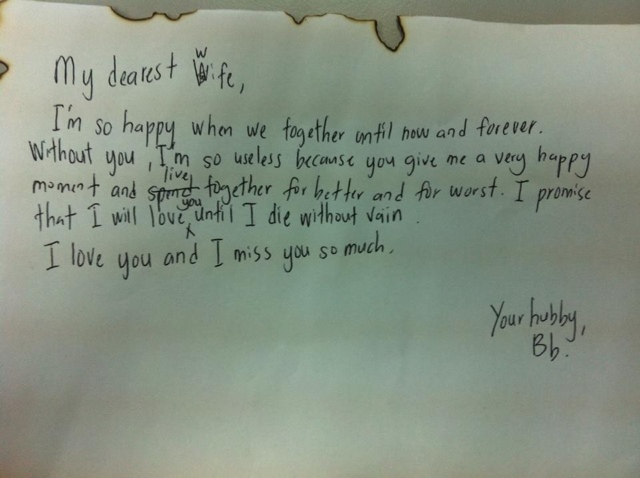 My dearest Wife,
I'm so happy when we together until now and forever.
Without you, I'm so useless because you give me a very happy
moment and live together for better and for worst. I promise
that I will love you until I die without vain.
I love you and I miss you so much.
Your hubby,
Bb.